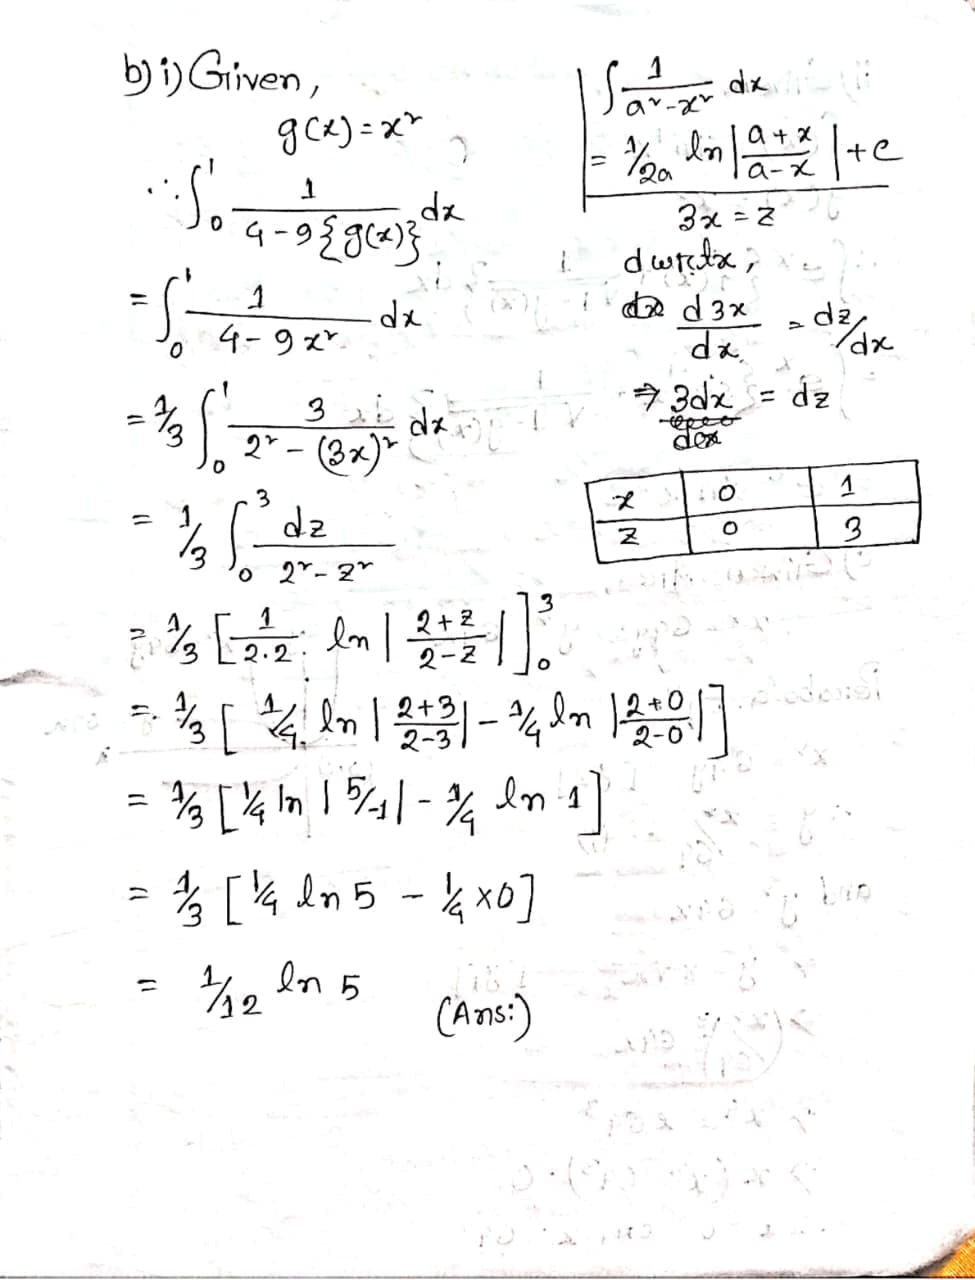 b) i) Given,
g(x) = x²
∴ ∫₀¹ 1/(4-9{g(x)}) dx
= ∫₀¹ 1/(4-9x²) dx
= 1/3 ∫₀¹ 3/(2² - (3x)²) dx
= 1/3 ∫₀³ dz/(2² - z²)
= 1/3 [1/2.2 . ln |(2+z)/(2-z)|]₀³
= 1/3 [1/4 ln |(2+3)/(2-3)| - 1/4 ln |(2+0)/(2-0)|]
= 1/3 [1/4 ln |5/-1| - 1/4 ln 1]
= 1/3 [1/4 ln 5 - 1/4 x0]
= 1/12 ln 5 (Ans:)
∫ 1/(a²-x²) dx
= 1/2a ln |(a+x)/(a-x)| + c
3x = z
d wrt x,
d3x/dx = dz/dx
⇒ 3dx = dz
x 0 1
z 0 3